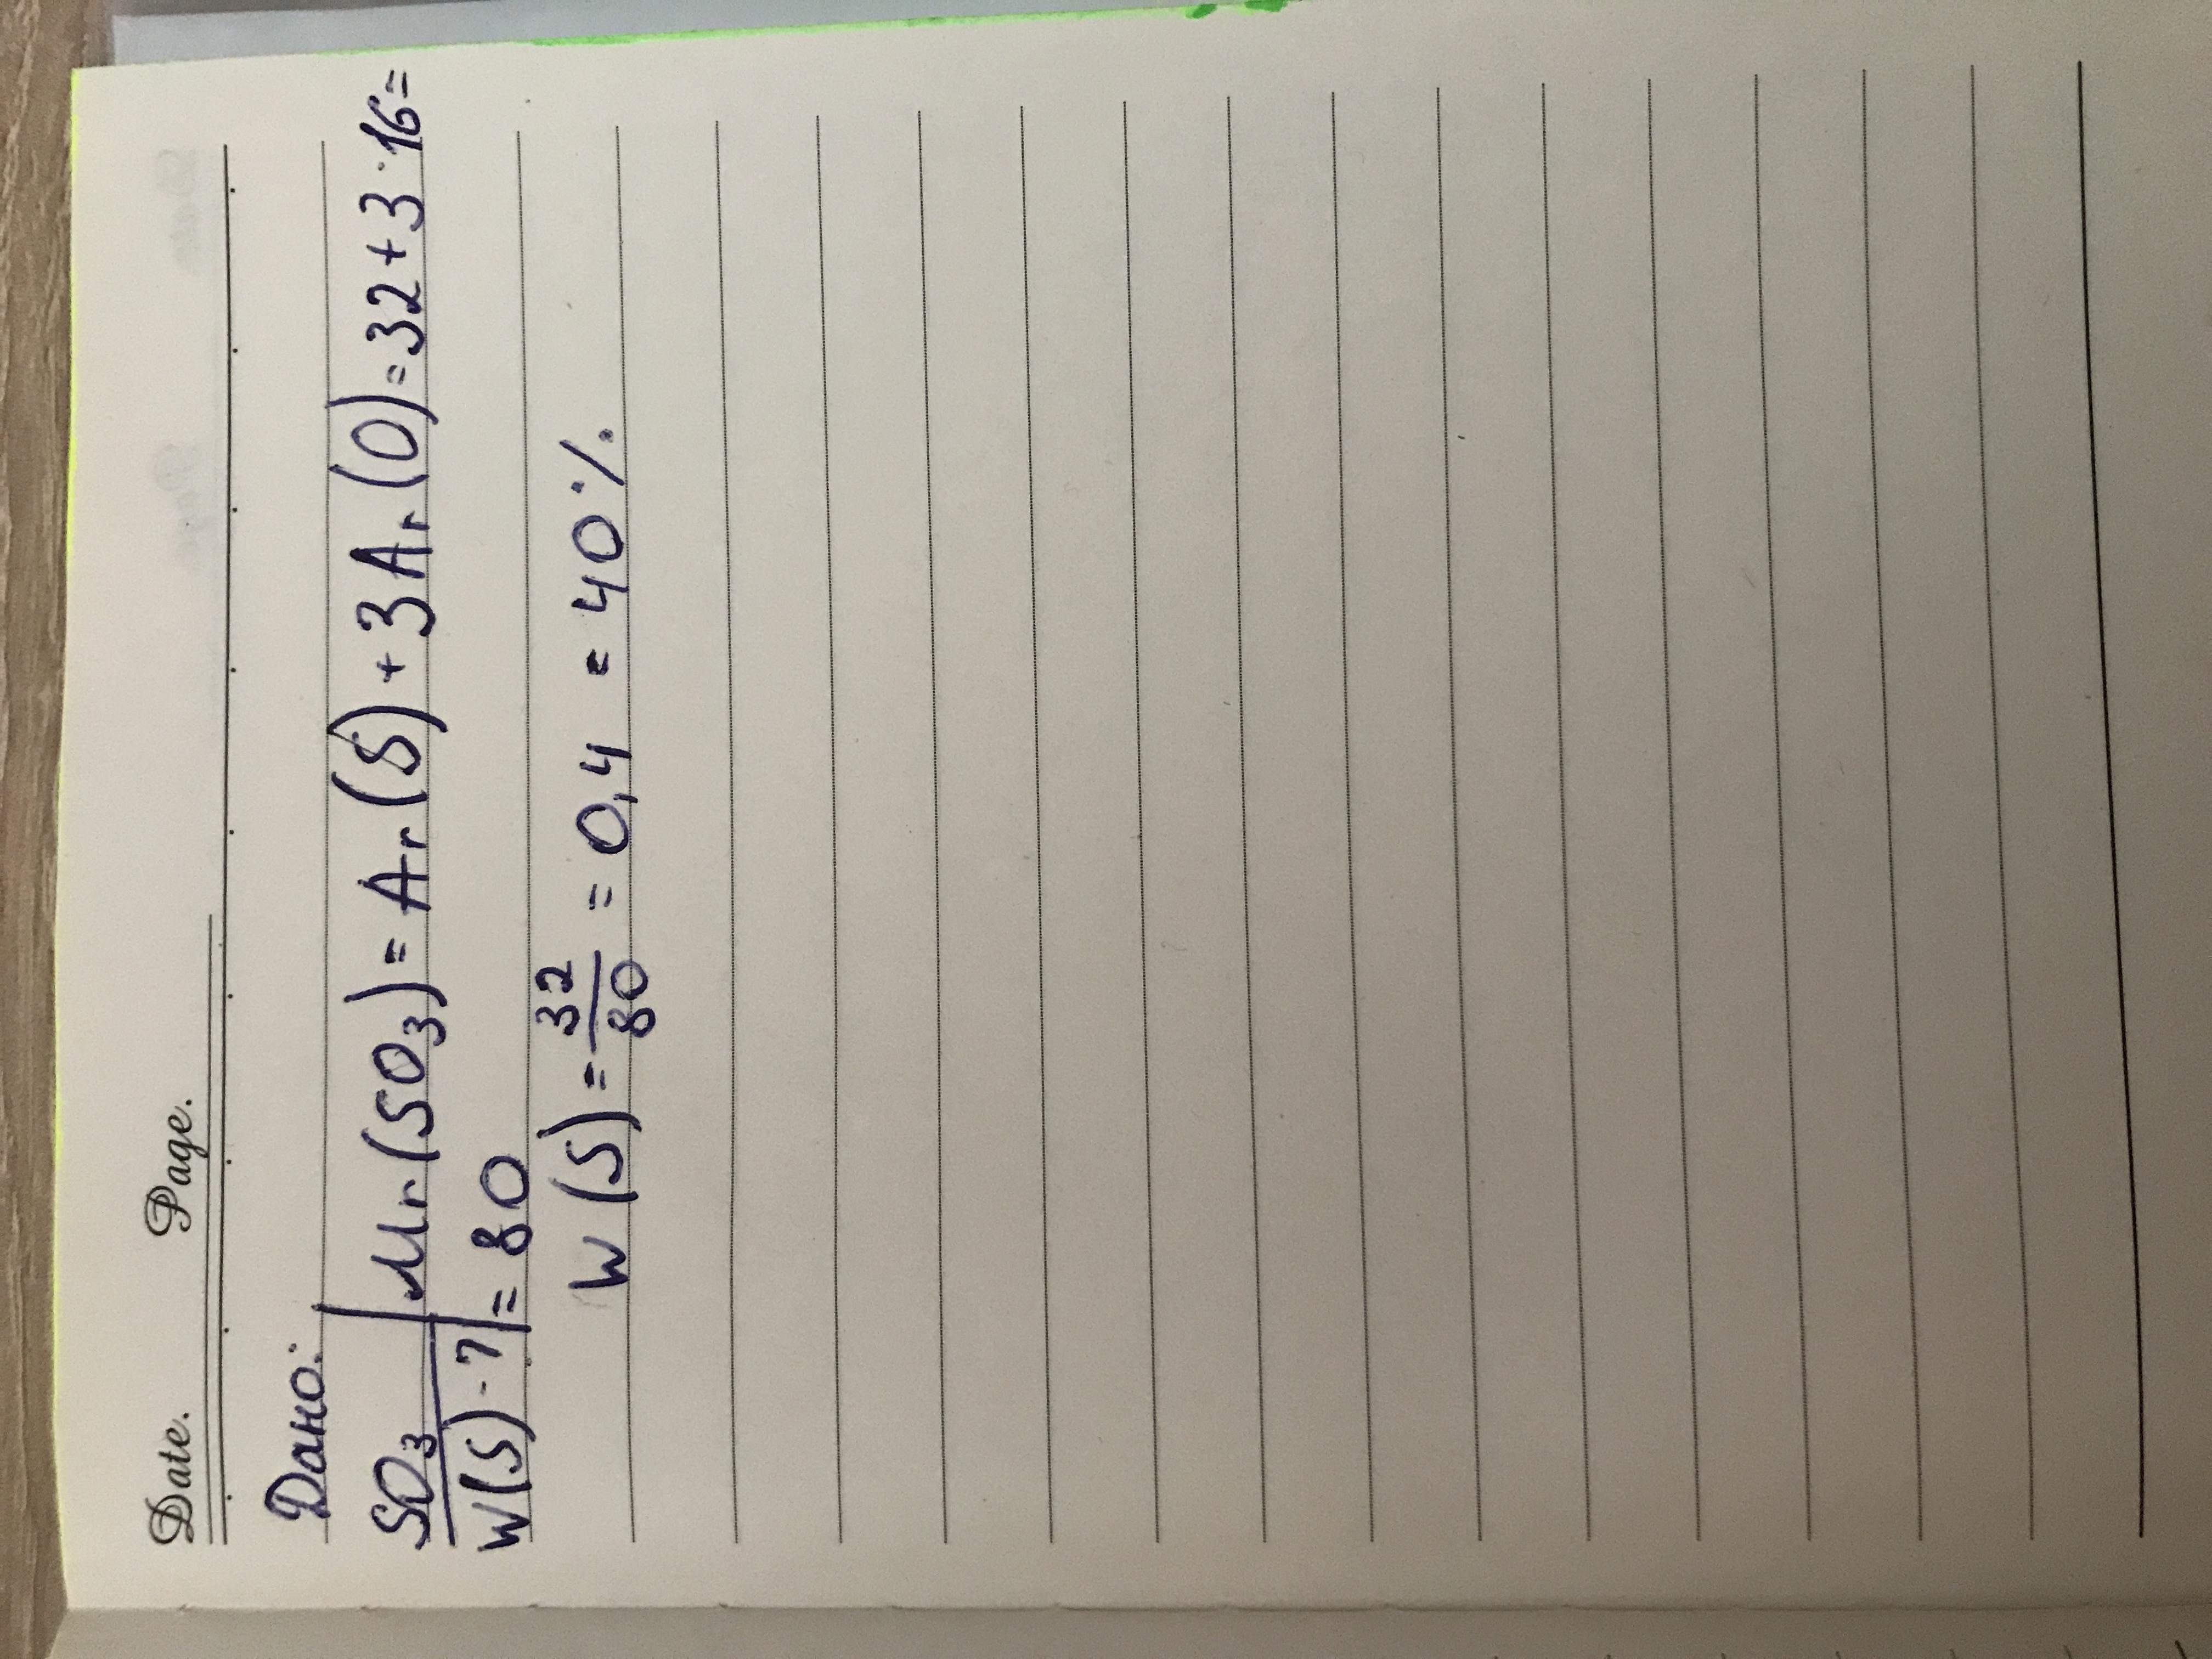 Date. Page.
Дано:
SO₃ | Mr(SO₃) = Ar(S) + 3Ar(O) = 32 + 3 · 16 =
W(S) - ? | = 80
W(S) = 32/80 = 0,4 = 40%.